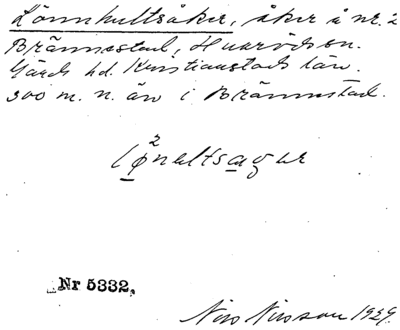 Lönnhultsåker, åker å nr. 2
Brännestad, Huaröds sn.
Gärds hd. Kristianstads län.
300 m. n. än i Brännestad.
2
Nr 5332.
Nils Nilsson 1929.